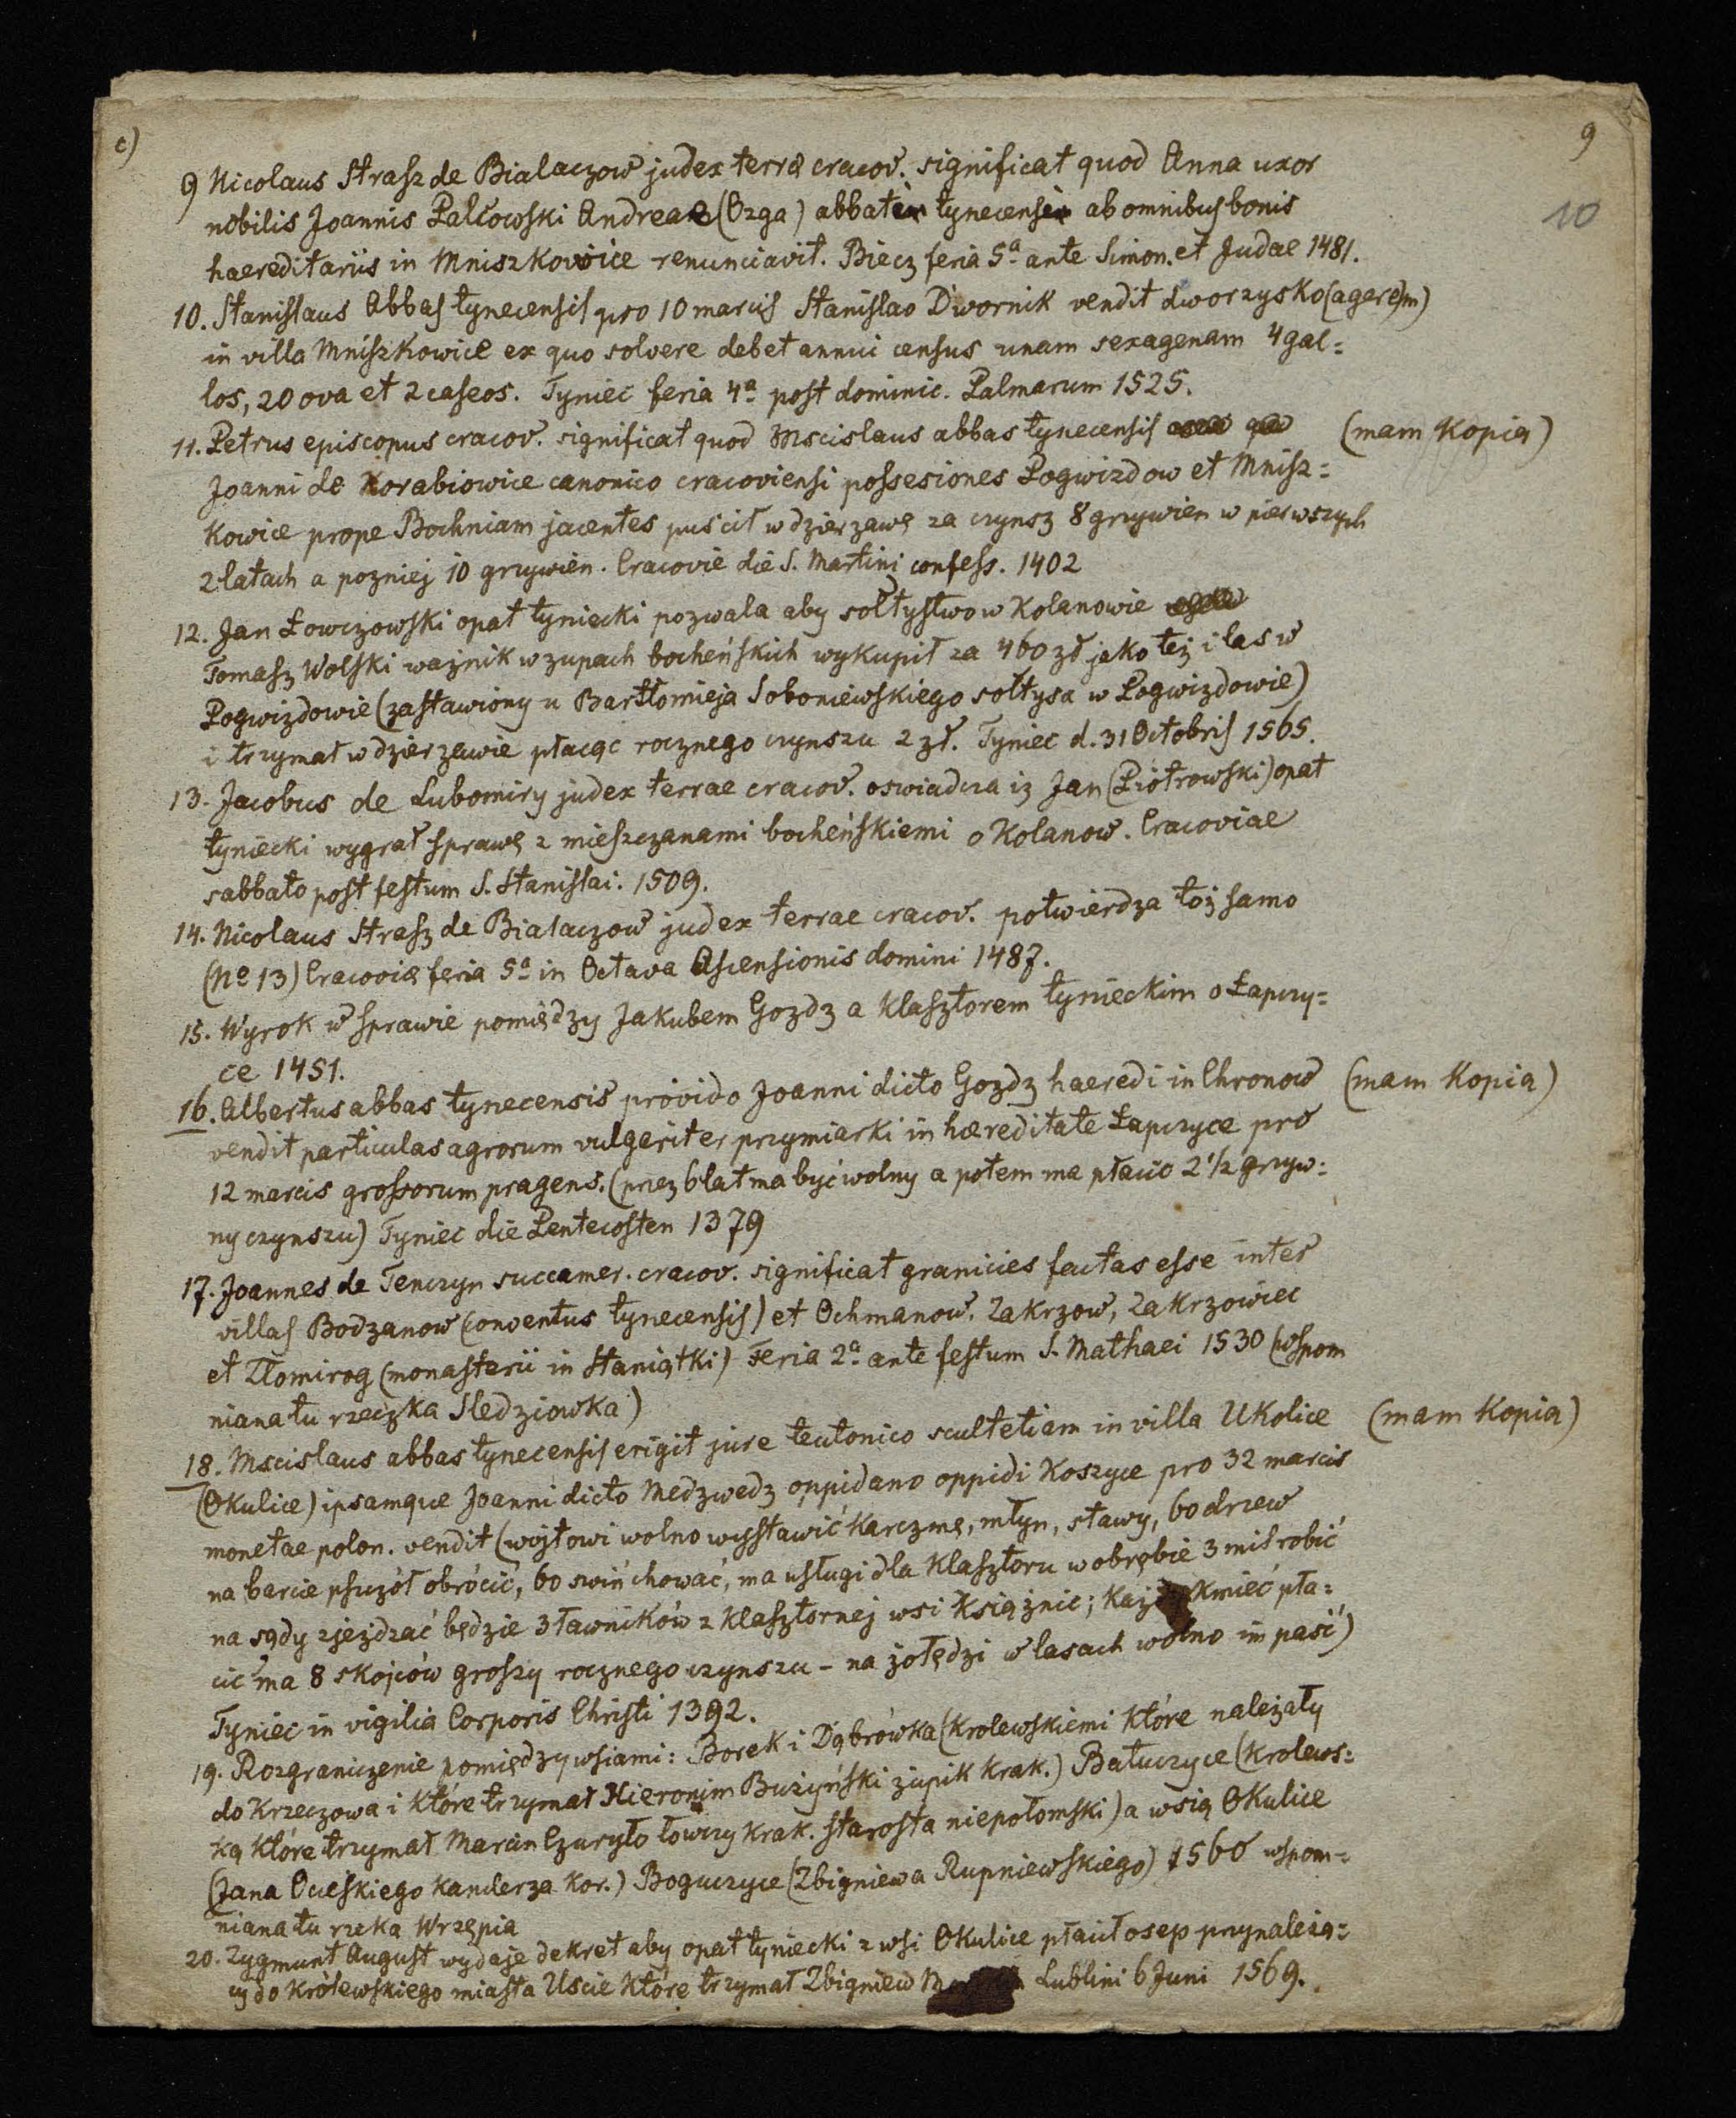 c)
9
10
9 Nicolaus Strasz de Bialaczow judex terræ cracov. significat quod Anna uxor
nobilis Joannis Palłowski Andreae (Ozga) abbati tynecensi ab omnibus bonis
haereditariis in Mniszkowice renunciavit. Biecz feria 5a ante Simon. et Judae 1481.
10. Stanislaus Abbas tynecensis pro 10 marcis Stanislao Dwornik vendit dworzysko (agere)m)
in villa Mniszkowice ex quo solvere debet annui census unam sexagenam 4 gal=
los, 20 ova et 2 caseos. Tyniec feria 4a post dominic. Palmarum 1525.
11. Petrus episcopus cracov. significat quod Mscislaus abbas tynecensis (mam kopią)
Joanni de Korabiowice canonico cracoviensi possesiones Pogwizdow et Mnisz=
kowice prope Bochniam jacentes puścił w dzierzawę za czynsz 8 grzywien w pierwszych
2 latach a pozniej 10 grzywien. Cracovie die S. Martini confess. 1402
12. Jan Łowczowski opat tyniecki pozwala aby sołtystwo w Kolanowie
Tomasz Wolski ważnik w zupach bocheńskich wykupił za 460 zł jako też i las w
Pogwizdowie (zastawiony u Bartłomieja Soboniewskiego sołtysa w Pogwizdowie)
i trzymał w dzierzawie płacąc rocznego czynszu 2 zł. Tyniec d. 31 Octobris 1565.
13. Jacobus de Lubomiry judex terrae cracov. oswiadcza iz Jan (Piotrowski) opat
tyniecki wygrał sprawę z mieszczanami bocheńskiemi o Kolanow. Cracoviae
sabbato post festum S. Stanislai. 1509.
14. Nicolaus Strasz de Bialaczow judex terrae cracov. potwierdza toż samo
(No 13) Cracoviæ feria 5a in Octava Ascensionis domini 1487.
15. Wyrok w sprawie pomiędzy Jakubem Gozdz a klasztorem tynieckim o Łapczy=
ce 1451.
16. Albertus abbas tynecensis provido Joanni dicto Gozdz haeredi in Chronow (mam kopią)
vendit particulas agrorum vulgariter przymiarki in hæreditate Łapczyce pro
12 marcis grossorum pragens. (przez 6 lat ma być wolny a potem ma płacić 2 1/2 grzyw=
ny czynszu) Tyniec die Pentecosten 1379
17. Joannes de Tenczyn succamer. cracov. significat granicies factas esse inter
villas Bodzanow (conventus tynecensis) et Ochmanow. Zakrzow, Zakrzowiec
et Złomirog (monasterii in Staniątki) Feria 2a ante festum S. Mathaei 1530 (wspom
niana tu rzeczka Sledziowka)
18. Mscislaus abbas tynecensis erigit jure teutonico scultetiam in villa Ukolice (mam kopią)
(Okulice) ipsamque Joanni dicto Medzwedz oppidano oppidi Koszyce pro 32 marcis
monetae polon. vendit (wójtowi wolno wystawić karczmę, młyn, stawy, 60 drzew
na barcie pszczół obrócić, 60 świń chować, ma usługi dla klasztoru w obrębie 3 mil robić
na sądy zjeżdzać będzie 3 ławników z klasztornej wsi Książnic; każdy kmieć pła=
cić ma 8 skojców groszy rocznego czynszu – na żołędzi w lasach wolno im paść)
Tyniec in vigilia Corporis Christi 1392.
19. Rozgraniczenie pomiędzy wsiami: Borek i Dąbrówka (krolewskiemi które należały
do Krzeczowa i które trzymał Hieronim Bużyński żupik krak.) Bałuczyce (krolews=
ką które trzymał Marcin Czuryło łowczy krak. starosta niepołomski) a wsią Okulice
(Jana Ocieskiego kanclerza kor.) Boguczyce (Zbigniewa Rupniewskiego) 1560 wspom=
niana tu rzeka Wrzępia
20. Zygmunt August wydaje dekret aby opat tyniecki z wsi Okulice płacił osep przynależą=
cy do królewskiego miasta Uscie które trzymał Zbigniew Lublini 6 Juni 1569.